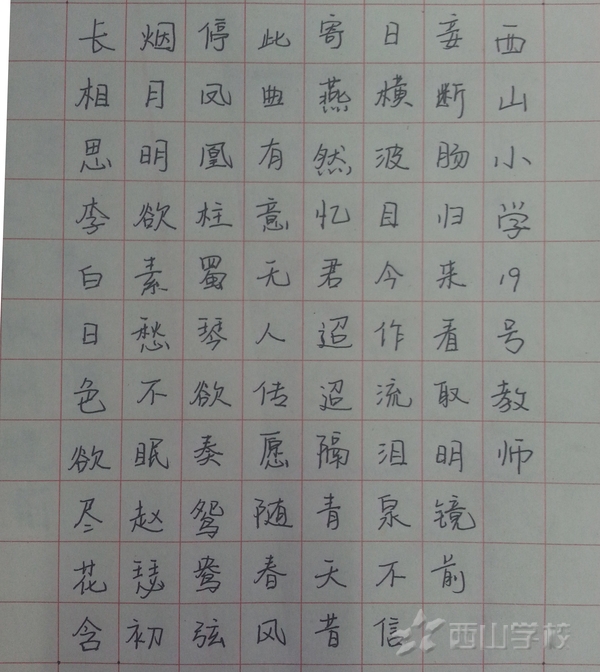 长相思李白日色欲尽花含
烟月明欲素愁不眠赵瑟初
停凤凰柱蜀琴欲奏鸳鸯弦
此曲有意无人传愿随春风
寄燕然忆君迢迢隔青天昔
日横波目今作流泪泉不信
妾断肠归来看取明镜前
西山小学19号教师
西山学校